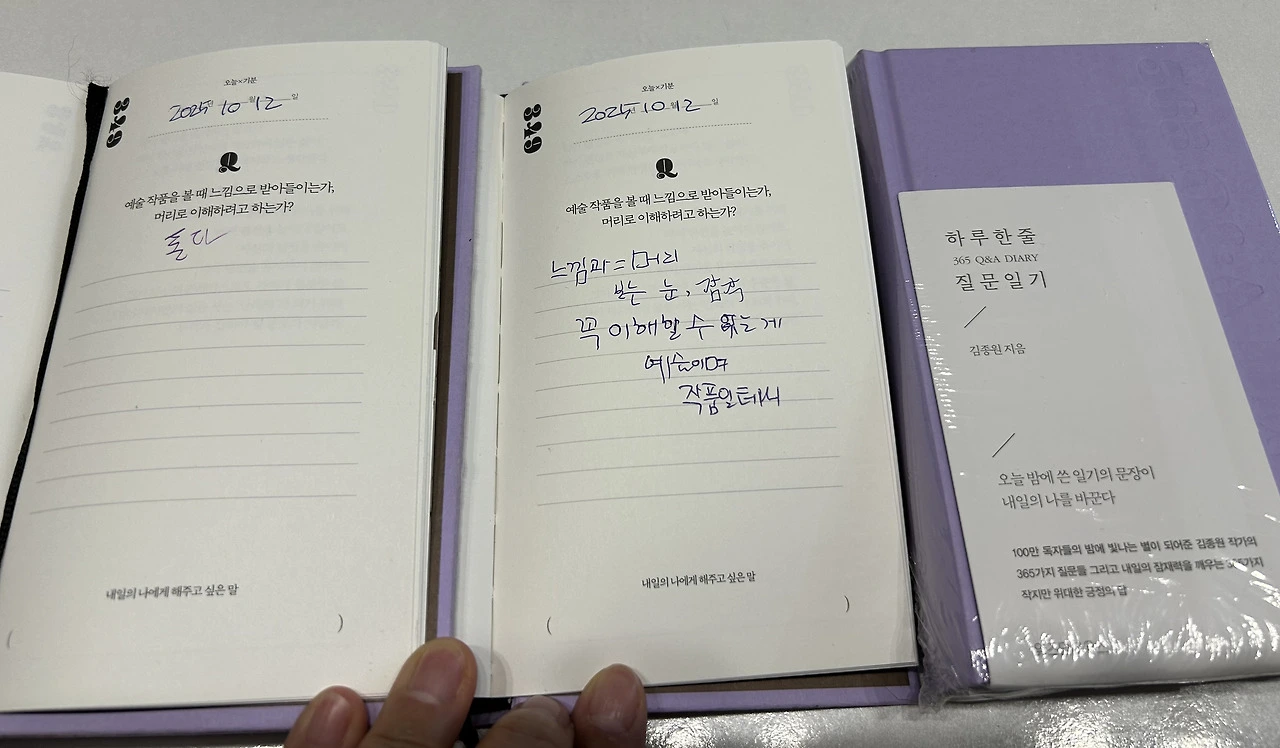 349
오늘×기분
2025년 10월 12일
Q
예술 작품을 볼 때 느낌으로 받아들이는가,
머리로 이해하려고 하는가?
둘다
내일의 나에게 해주고 싶은 말
( )
349
오늘×기분
2025년 10월 12일
Q
예술 작품을 볼 때 느낌으로 받아들이는가,
머리로 이해하려고 하는가?
느낌과 = 머리
보는 눈, 감각
꼭 이해할 수 없는게
예술이며
작품일테니
내일의 나에게 해주고 싶은 말
( )
하루한줄
365 Q&A DIARY
질문일기
김종원 지음
오늘 밤에 쓴 일기의 문장이
내일의 나를 바꾼다
100만 독자들의 밤에 빛나는 별이 되어준 김종원 작가의
365가지 질문들 그리고 내일의 잠재력을 깨우는 365가지
작지만 위대한 긍정의 답